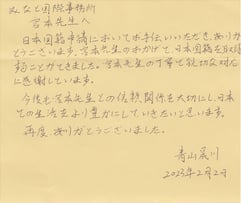 みなと国際事務所
宮本先生へ
日本国籍申請においてお手伝いいただき、ありが
とうございます。宮本先生のおかげで、日本国籍を取得
することができました。宮本先生の丁寧で親切な対応
に感謝しています。
今後も宮本先生との信頼関係を大切にし、日本
での生活をより豊かにしていきたいと思います。
再度、ありがとうございました。
青山展川
2023年2月2日